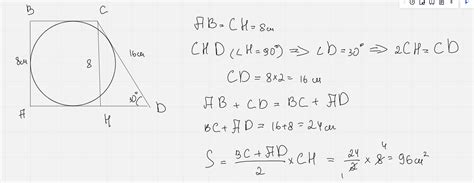 B C
8см 8 16см
30°
A H D
AB = CH = 8см
CHD (∠H = 90°) ⟹ ∠D = 30° ⟹ 2CH = CD
CD = 8×2 = 16 см
AB + CD = BC + AD
BC + AD = 16+8 = 24см
S = BC + AD / 2 × CH = 24 / 2 1 × 8 4 = 96см²